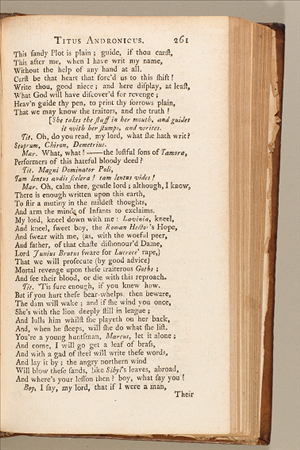 TITUS ANDRONICUS. 261
This sandy Plot is plain; guide, if thou canst,
This after me, when I have writ my name,
Without the help of any hand at all.
Curst be that heart that forc'd us to this shift!
Write thou, good niece; and here display, at least,
What God will have discover'd for revenge;
Heav'n guide thy pen, to print thy sorrows plain,
That we may know the traitors, and the truth!
[She takes the staff in her mouth, and guides
it with her stumps, and writes.
Tit. Oh, do you read, my lord, what she hath writ?
Stuprum, Chiron, Demetrius.
Mar. What, what!——the lustful sons of Tamora,
Performers of this hateful bloody deed?
Tit. Magni Dominator Poli,
Tam lentus audis scelera! tam lentus vides!
Mar. Oh, calm thee, gentle lord; although, I know,
There is enough written upon this earth,
To stir a mutiny in the mildest thoughts,
And arm the minds of Infants to exclaims.
My lord, kneel down with me: Lavinia, kneel,
And kneel, sweet boy, the Roman Hector's Hope,
And swear with me, (as, with the woeful peer,
And father, of that chaste dishonour'd Dame,
Lord Junius Brutus sware for Lucrece' rape,)
That we will prosecute (by good advice)
Mortal revenge upon these traiterous Goths;
And see their blood, or die with this reproach.
Tit. 'Tis sure enough, if you knew how.
But if you hurt these bear-whelps, then beware,
The dam will wake; and if she wind you once,
She's with the lion deeply still in league;
And lulls him whilst she playeth on her back,
And, when he sleeps, will she do what she list.
You're a young huntsman, Marcus, let it alone;
And come, I will go get a leaf of brass,
And with a gad of steel will write these words,
And lay it by; the angry northern wind
Will blow these sands, like Sibyl's leaves, abroad,
And where's your lesson then? boy, what say you?
Boy, I say, my lord, that if I were a man,
Their